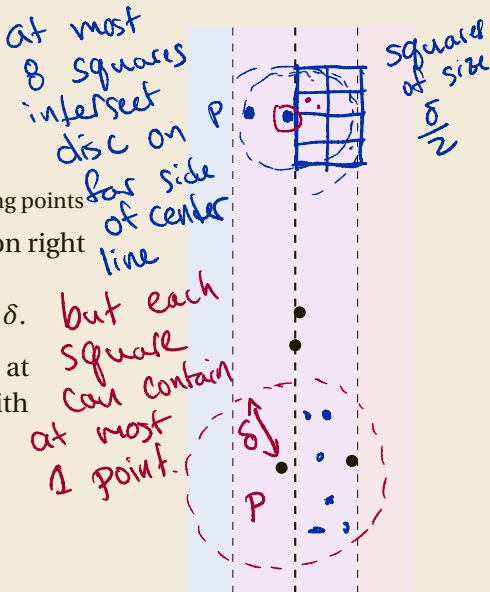 at most
8 squares
intersect
disc on
far side
of center
line
P
squares
of size
δ/2
ng points
on right
δ.
at
ith
but each
square
can contain
at most
1 point.
δ
P